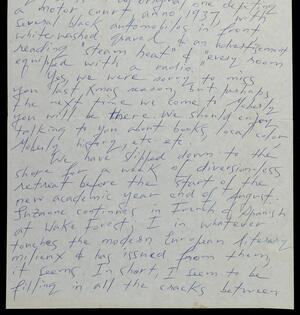 original one depicting
a motor court anno 1937, with
several black automobiles in front
whitewashed gravel & an advertisement
reading "steam heat" & "every room
equipped with a radio."
Yes, we were sorry to miss
you last Xmas season, but perhaps
the next time we come to Moberly
you will be there. We should enjoy
talking to you about books, local color
Moberly history, etc. etc.
We have slipped down to the
shore for a week of diversion-less
retreat before the start of the
new academic year end of August.
Suzanne continues in French & Spanish
at Wake Forest, I in whatever
touches the modern European literary
milieux & has issued from them,
it seems. In short, I seem to be
filling in all the cracks between